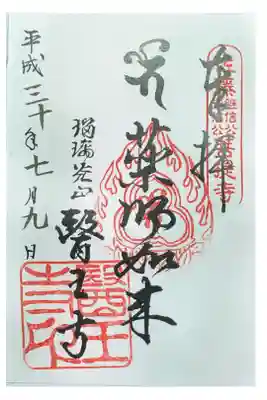 奉拝
薬師如来
瑠璃光山
醫王寺
平成三十年七月九日